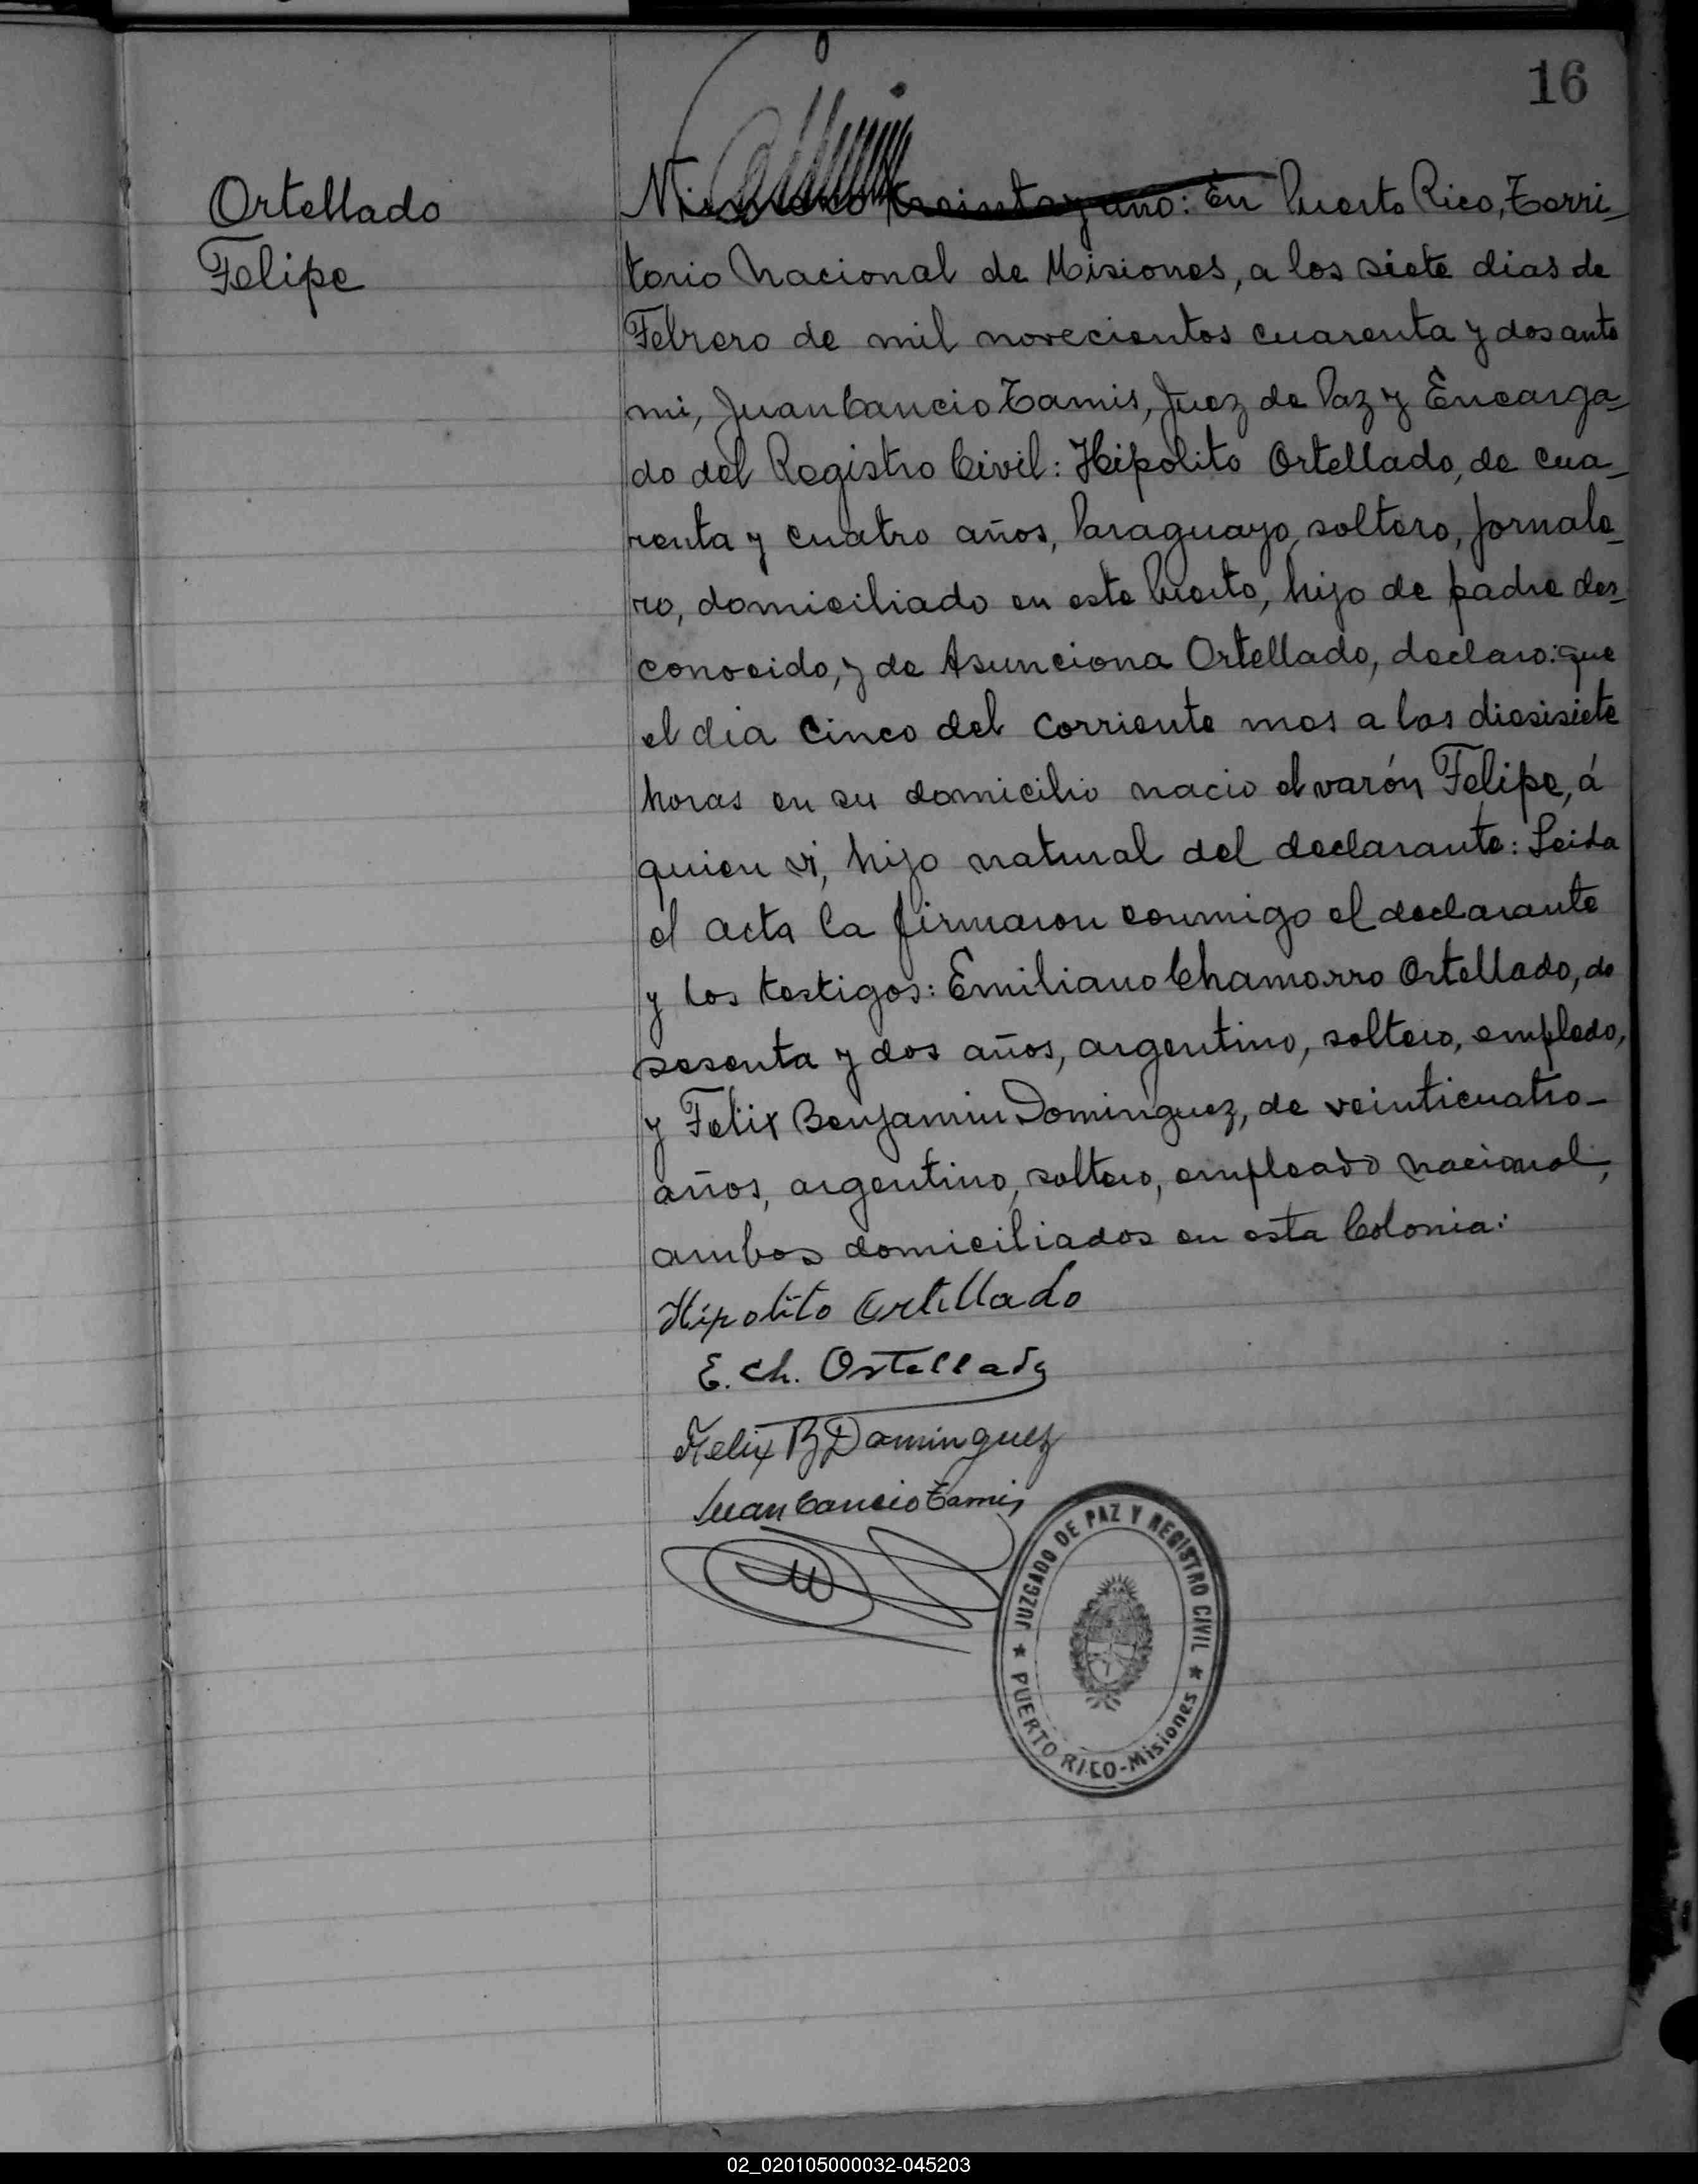 16
Ortellado
Felipe
Número treinta y uno: En Puerto Rico, Terri-
torio Nacional de Misiones, a los siete dias de
Febrero de mil novecientos cuarenta y dos ante
mi, Juan Cancio Tamis, Juez de Paz y Encarga-
do del Registro Civil: Hipolito Ortellado, de cua-
renta y cuatro años, Paraguayo, soltero, Jornale-
ro, domiciliado en este Puerto, hijo de padre des-
conocido, y de Asunciona Ortellado, declaro: que
el dia cinco del corriente mes a las diesisiete
horas en su domicilio nacio el varón Felipe, á
quien vi, hijo natural del declarante: Leida
el acta la firmaron conmigo el declarante
y los testigos: Emiliano Chamorro Ortellado, de
sesenta y dos años, argentino, soltero, empledo,
y Felix Benjamin Dominguez, de veinticuatro-
años, argentino, soltero, empleado nacional,
ambos domiciliados en esta Colonia:
Hipolito Ortellado
E. Ch. Ortellado
Felix B Dominguez
Juan Cancio Tamis
JUZGADO DE PAZ Y REGISTRO CIVIL
★ PUERTO RICO-Misiones ★
02_020105000032-045203